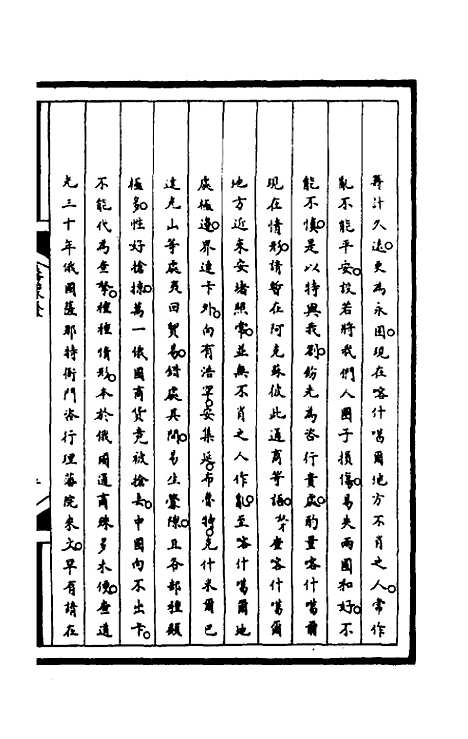 再計久遠更為永固現在喀什噶爾地方不肖之人常作
亂不能平安設若將我們人圈子損傷易失兩國和好不
能不慎是以特與我劄飭先為咨行貴處酌量喀什噶爾
現在情形請暫在阿克蘇彼此通商等語弟查喀什噶爾
地方近來安堵照常並無不肖之人作亂至喀什噶爾地
處極邊界連卡外向有浩罕安集延布魯特克什米爾巴
達克山等處夷回貿易錯處其間易生釁隙且各部種類
極多性好搶掠萬一俄國商貨竟被搶去中國向不出卡
不能代為查拏種種情形本於俄國通商殊多未便查道
光三十年俄國薩那特衙門咨行理藩院來文早有請在